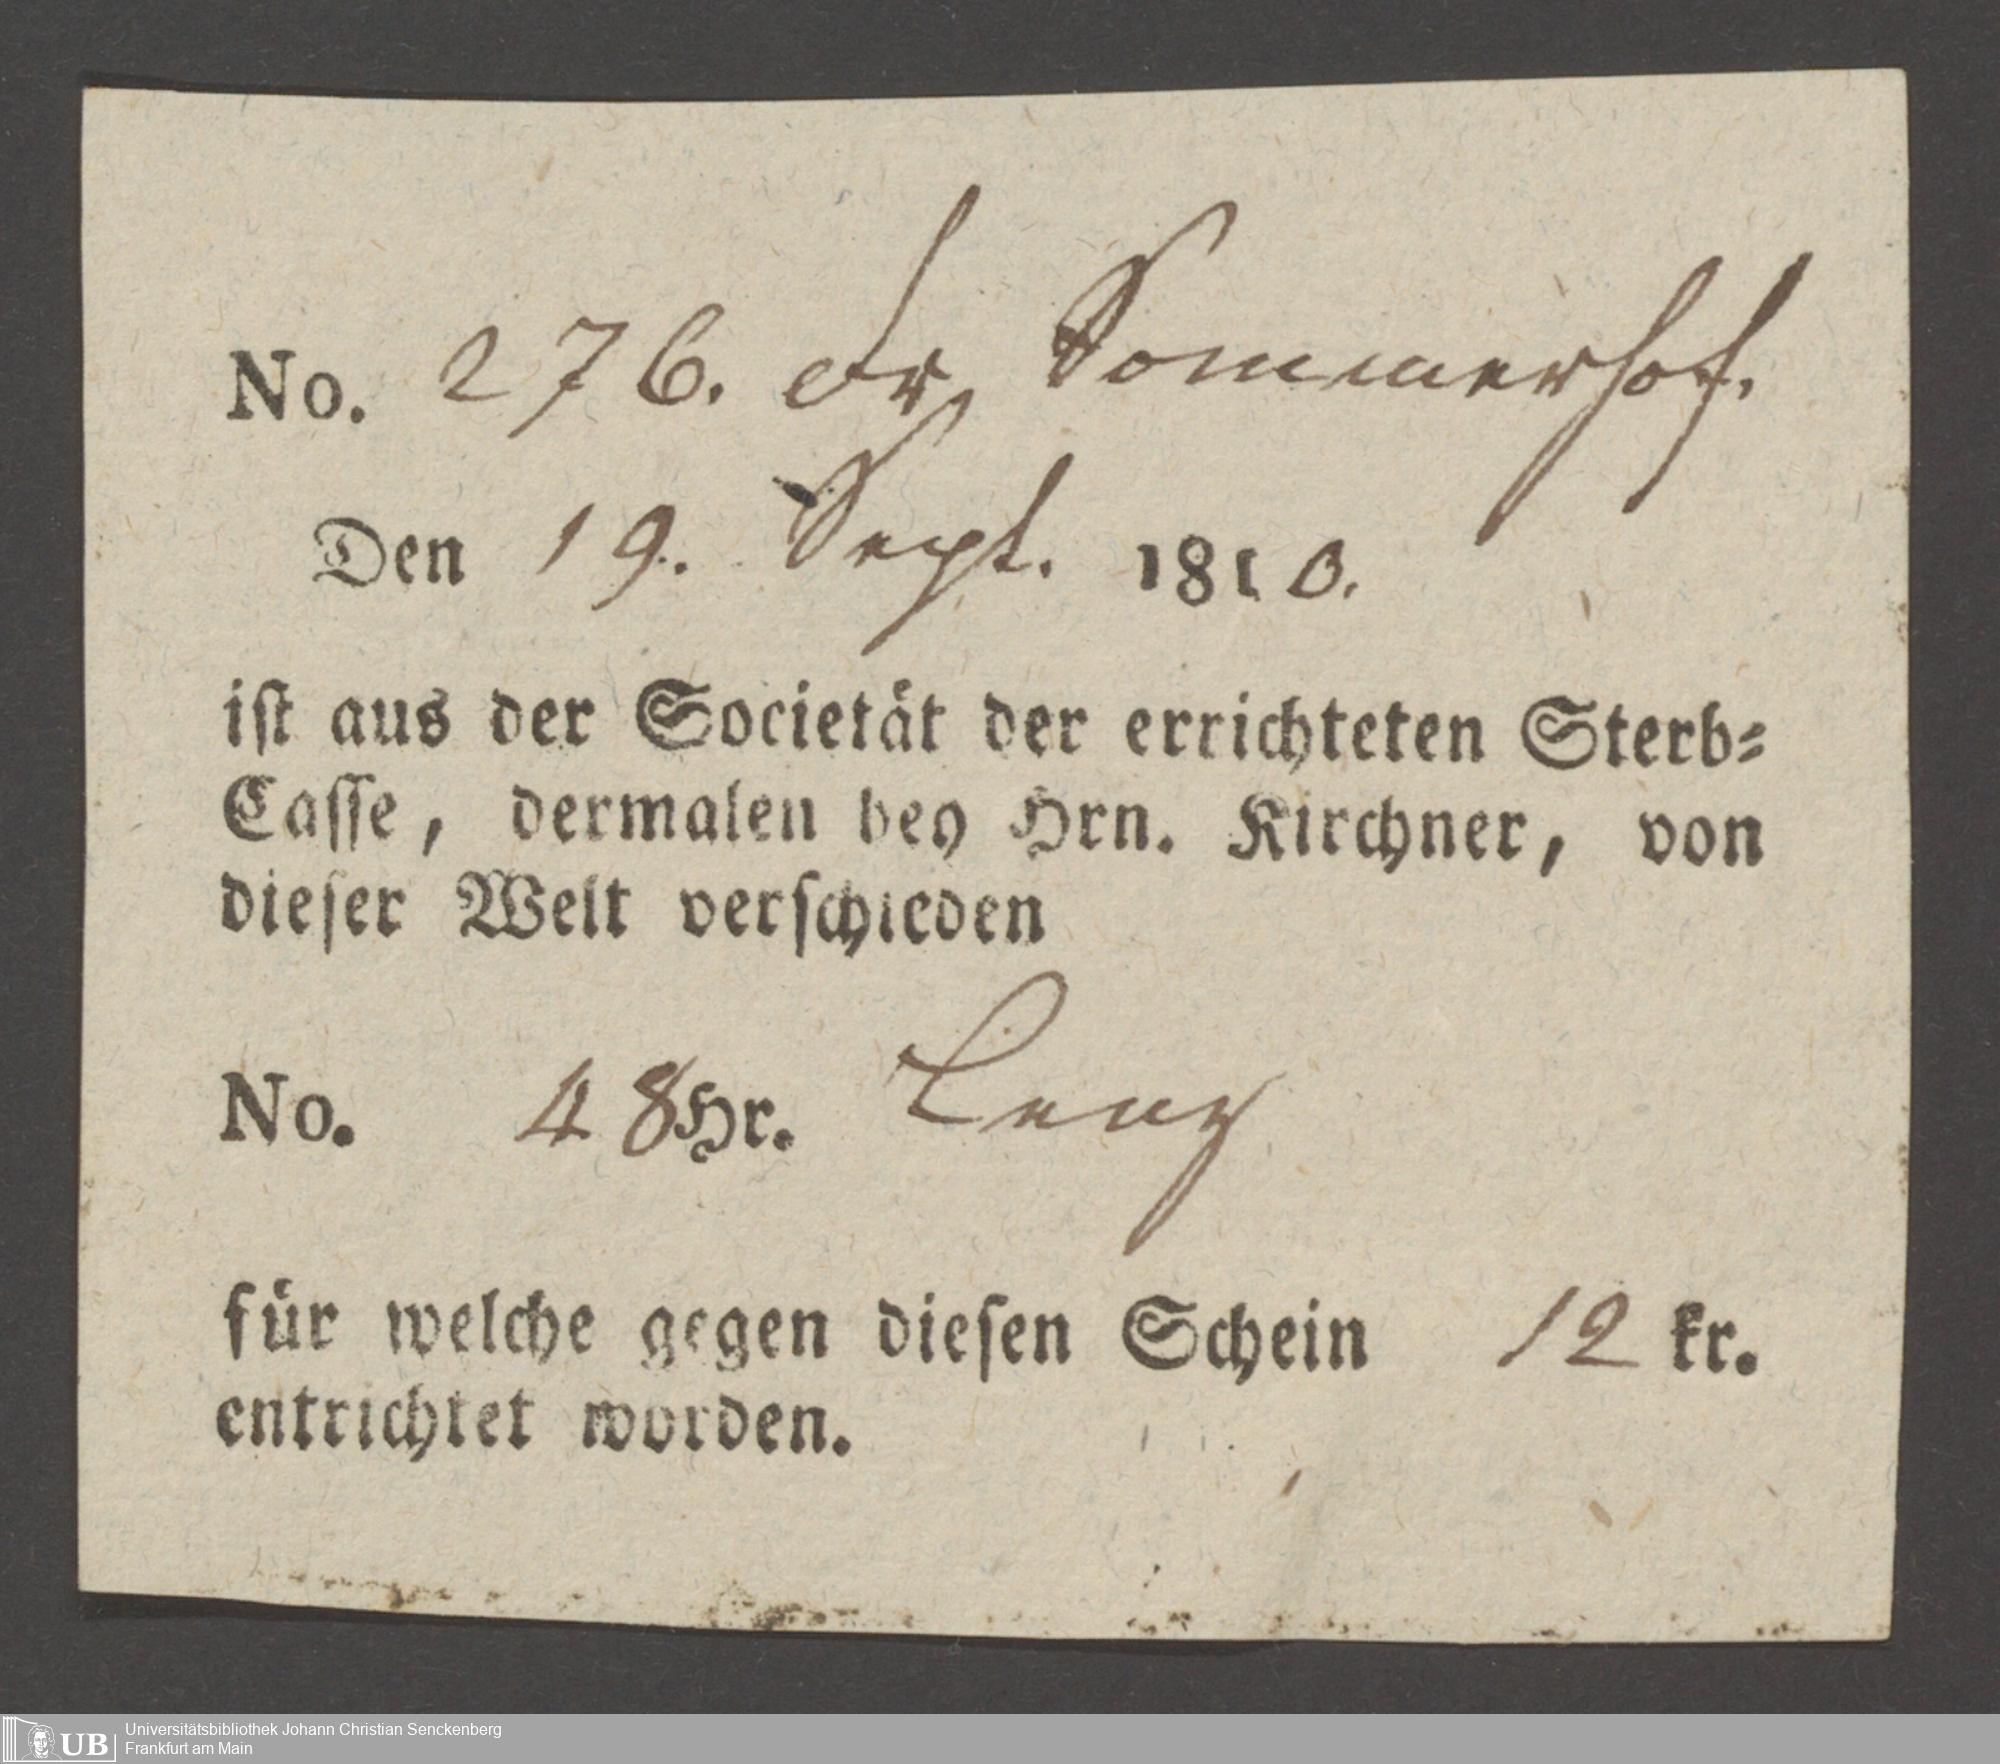 No. 276. Dr Sommerhof.
Den 19. Sept. 1810.
iſt aus der Societät der errichteten Sterb⸗
Caſſe, dermalen bey Hrn. Kirchner, von
dieſer Welt verſchieden
No. 48 Hr. Lenz
für welche gegen dieſen Schein 12 kr.
entrichtet worden.
UB Universitätsbibliothek Johann Christian Senckenberg
Frankfurt am Main